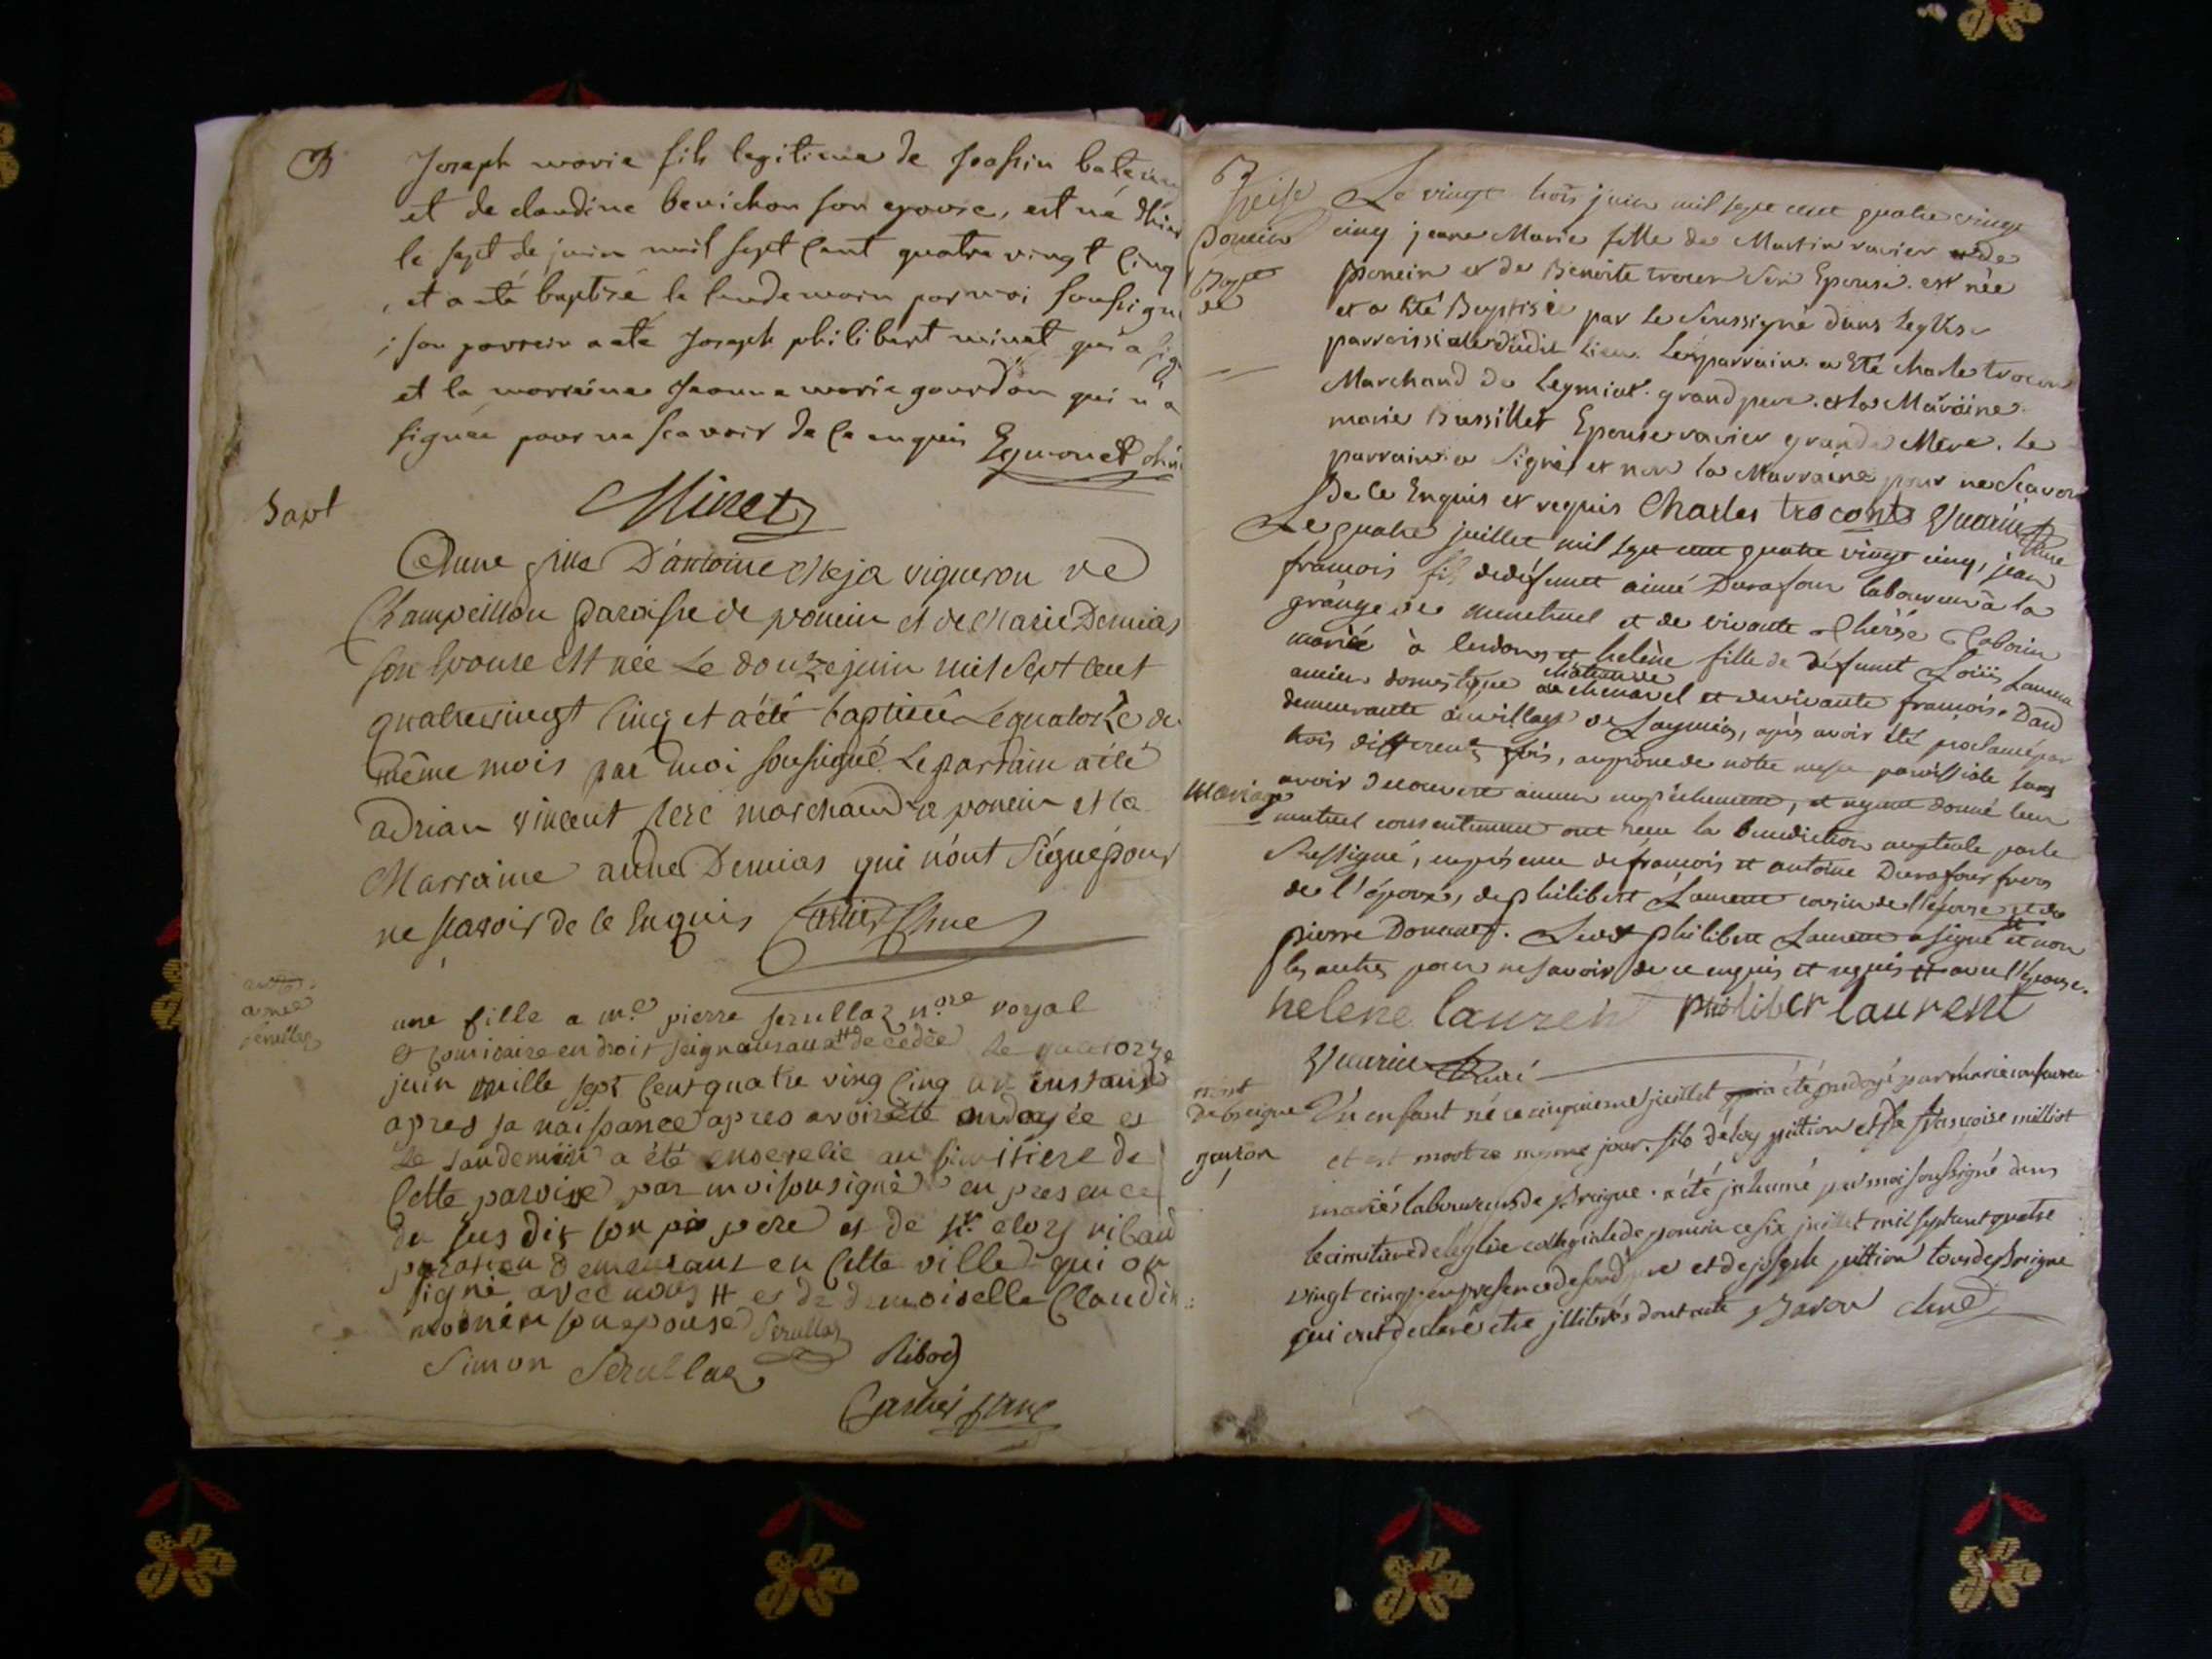 B
Joseph marie fils legitime de Joassin
et de claudine benichon son epouse, est né d'hier
le sept de juin mil sept cent quatre vingt cinq
et a eté baptisé le landemain par moi soussigné
; son parrein a eté Joseph philibert minet qui a sig
et la marreine Jeanne marie gourdon qui n'a
signée pour ne scavoir de ce enquis Eymonet
Minet
Bapt
Anne fille D'antoine Meja vigneron de
Champeillon paroisse de poncin et de Marie Demias
son Epouse est née Le douze juin mil sept cent
quatrevingt Cinq et a été baptisée Le quatorze du
même mois par moi soussigné. Le parrain a été
adrian vincent sere marchand a poncin et la
Marraine anne Demias qui n'ont Signé pour
ne scavoir de ce Enquis
une fille a me pierre serullaz nore royal
et commissaire en droit seigneuraux # decedée le quatorze
juin mille sept Cent quatre ving Cinq un instand
apres sa naissance apres avoir été ondoyée et
Le Landemin a été ensevelie au simitiere de
Cette paroise par moi sousigné en presence
du sus dit son pere et de sr eloy ribaud
demeurant en Cette ville qui on
signé avec nous # et de demoiselle Claudi
son epouse Serullaz
Simon Serullaz Ribod
B
Poncin
Le vingt trois juin mil sept cent quatre vingt
cinq jeane Marie fille de Martin ravier de
Poncin et de Benoite trocon Son Epouse. est née
et a Eté Baptisée par Le Soussigné dans Leglise
parroissiale dudit Lieu. Le parrain a Eté charle trocon
Marchand de Leymiat. grand pere. et la Maraine
marie Bussillet Epouse ravier grande Mere. Le
parrain a Signé et non la Marraine pour ne Scavoir
De Ce Enquis et requis Charles trocont Guarin Curé
Le quatre juillet mil sept cent quatre vingt cinq, jean
francois fils de défunct aimé Durafour laboureur à la
grange de menetruel et de vivante Thérèse
mariée à et helène fille de défunct Loüis Laurent
ancien domestique château de chenavel et de vivante françoise
demeurante au village de Leymias, après avoir été proclamé par
trois differentes fois, au prône de notre messe paroissiale sans
Mariage
avoir decouvert aucun empêchement, et ayant donné leur
mutuel consentement ont reçu la benediction nuptiale par le
soussigné, en présence de françois et antoine Durafour freres
de l'époux, de philibert Laurent cousin de l'épouse et de
pierre Donanet. Ledt philibert Laurent a signé et non
les autres pour ne savoir de ce enquis et requis # avec l'épouse.
helene laurent philiber laurent
Guarin Curé
mort
garson
Un enfant né ce cinquieme juillet a été ondoyé par marie
et est mort ce meme jour. fils de loy pittion et de françoise milliot
mariés laboureurs de Breigne. a été inhumé par moi soussigné dans
le cimetiere de l'eglise collegiale de poncin ce six juillet mil sept cent quatre
vingt cinq en presence de son dt pere et de joseph pittion tous de Breigne
qui ont declarés etre illiterés dont acte Baron Curé